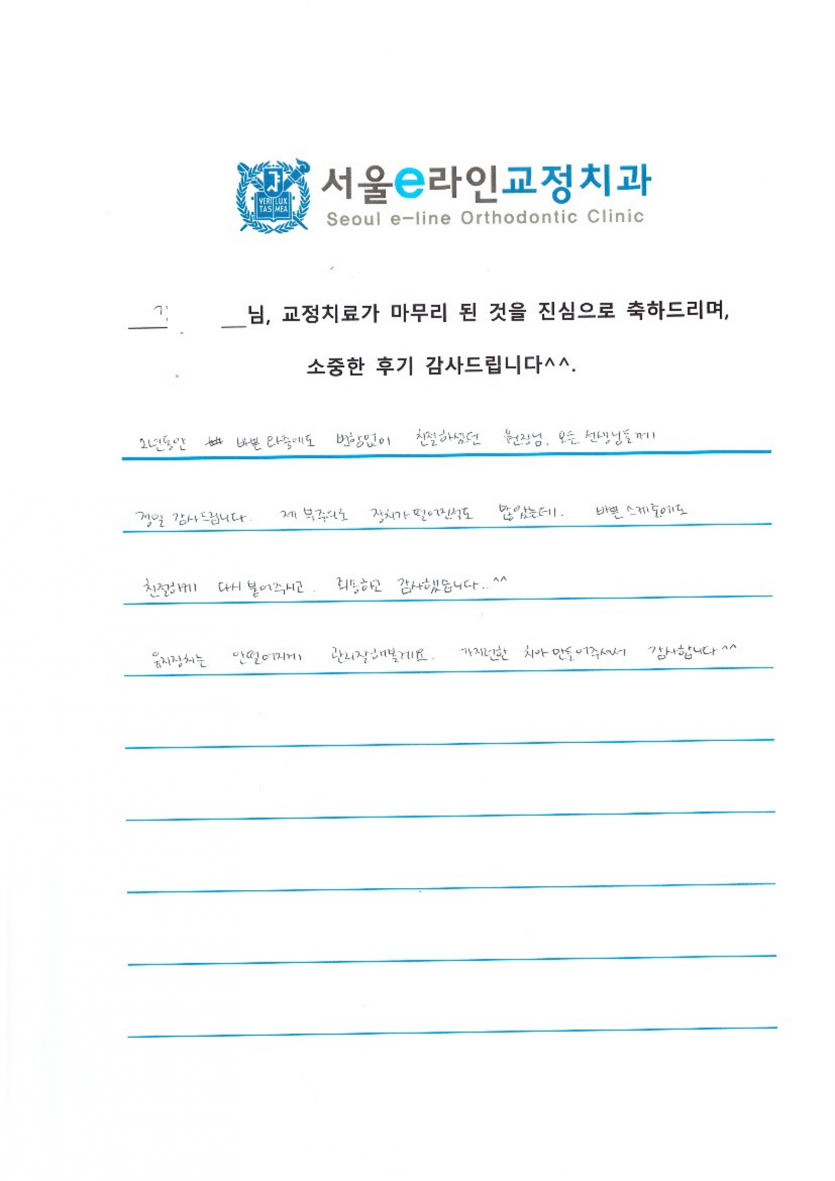 VERI LUX
TAS MEA
서울e라인교정치과
Seoul e-line Orthodontic Clinic
님, 교정치료가 마무리 된 것을 진심으로 축하드리며,
소중한 후기 감사드립니다^^.
2년동안 바쁜 와중에도 변함없이 친절하셨던 원장님, 모든 선생님들께
정말 감사드립니다. 제 부주의로 장치가 떨어진적도 많았는데. 바쁜 스케줄에도
친절하게 다시 붙여주시고. 죄송하고 감사했습니다..^^
유지장치는 안떨어지게 관리잘해볼게요. 가지런한 치아 만들어주셔서 감사합니다^^